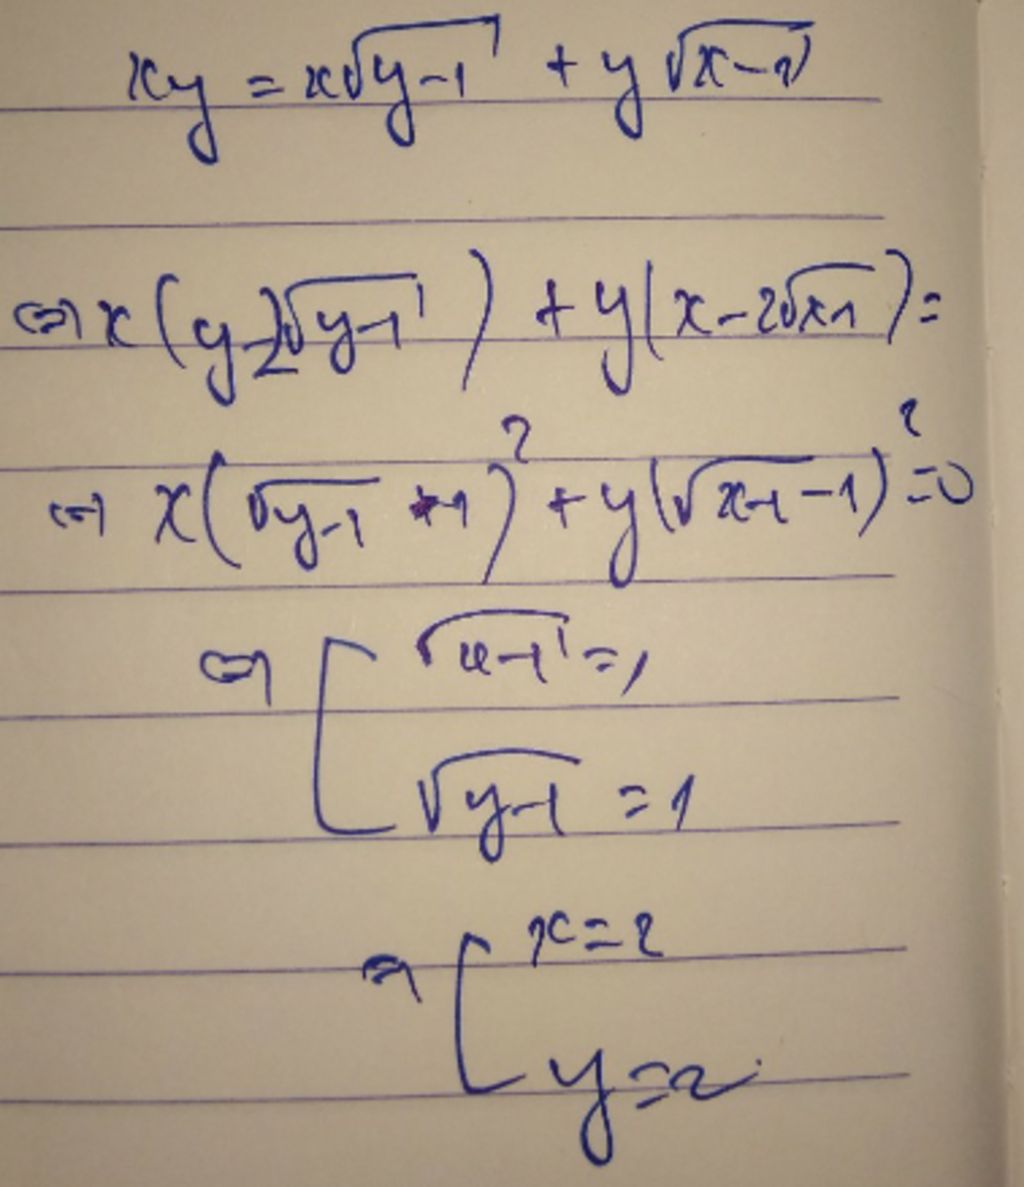 xy = x√(y-1) + y√(x-1)
⇔ x(y-2√(y-1)) + y(x-2√(x-1)) =
⇔ x(√(y-1) -1)² + y(√(x-1) -1)² = 0
⇔ [ √(x-1) = 1
√(y-1) = 1
⇒ [ x = 2
y = 2